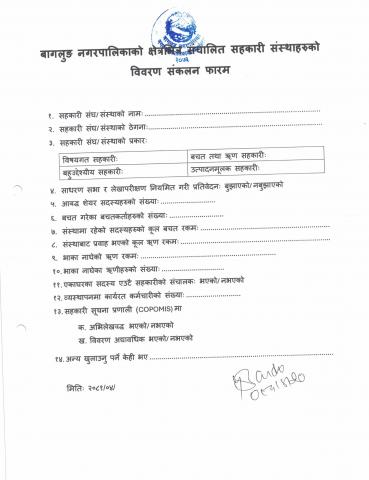 बागलुङ नगरपालिकाको क्षेत्रभित्र संचालित सहकारी संस्थाहरुको
विवरण संकलन फारम
१. सहकारी संघ/संस्थाको नामः
२. सहकारी संघ/संस्थाको ठेगानाः
३. सहकारी संघ/संस्थाको प्रकारः
विषयगत सहकारीः बचत तथा ऋण सहकारीः
बहुउद्देश्यीय सहकारीः उत्पादनमूलक सहकारीः
४. साधरण सभा र लेखापरीक्षण नियमित गरी प्रतिवेदनः बुझाएको/नबुझाएको
५. आवद्ध शेयर सदस्यहरुको संख्याः
६. बचत गरेका बचतकर्ताहरुको संख्याः
७. संस्थामा रहेको सदस्यहरुको कूल बचत रकमः
८. संस्थाबाट प्रवाह भएको कूल ऋण रकमः
९. भाका नाघेको ऋण रकमः
१०. भाका नाघेका ऋणीहरुको संख्याः
११. एकाघरका सदस्य एउटै सहकारीको संचालकः भएको/नभएको
१२. व्यवस्थापनमा कार्यरत कर्मचारीको संख्याः
१३. सहकारी सूचना प्रणाली (COPOMIS) मा
क. अभिलेखवद्ध भएको/नभएको
ख. विवरण अद्यावधिक भएको/नभएको
१४. अन्य खुलाउनु पर्ने केही भए
मितिः २०८१/०४/